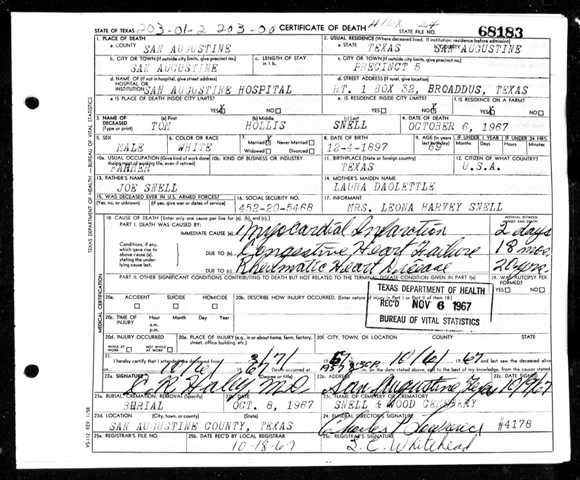 STATE OF TEXAS 203-01-2 203-00 CERTIFICATE OF DEATH STATE FILE NO. 68183
1. PLACE OF DEATH
2. USUAL RESIDENCE (Where deceased lived. If institution: residence before admission)
a. COUNTY SAN AUGUSTINE
a. STATE TEXAS b. COUNTY SAN AUGUSTINE
b. CITY OR TOWN (If outside city limits, give precinct no.) SAN AUGUSTINE
c. LENGTH OF STAY
c. CITY OR TOWN (If outside city limits, give precinct no.) PRECINCT 5
d. NAME OF (If not in hospital, give street address) HOSPITAL OR INSTITUTION SAN AUGUSTINE HOSPITAL
d. STREET ADDRESS (If rural, give location) RT. 1 BOX 32, BROADDUS, TEXAS
e. IS PLACE OF DEATH INSIDE CITY LIMITS? YES NO
e. IS RESIDENCE INSIDE CITY LIMITS? YES NO
f. IS RESIDENCE ON A FARM? YES NO
3. NAME OF DECEASED (Type or print)
(a) First TOM
(b) Middle HOLLIS
(c) Last SNELL
4. DATE OF DEATH OCTOBER 6, 1967
5. SEX MALE
6. COLOR OR RACE WHITE
7. Married Never Married Widowed Divorced
8. DATE OF BIRTH 12-4-1897
9. AGE (In years last birthday) 69
IF UNDER 1 YEAR
IF UNDER 24 HRS.
10a. USUAL OCCUPATION (Give kind of work done during most of working life, even if retired) FARMER
10b. KIND OF BUSINESS OR INDUSTRY
11. BIRTHPLACE (State or foreign country) TEXAS
12. CITIZEN OF WHAT COUNTRY? U.S.A.
13. FATHER'S NAME JOE SNELL
14. MOTHER'S MAIDEN NAME LAURA DAOLETTLE
15. WAS DECEASED EVER IN U.S. ARMED FORCES?
16. SOCIAL SECURITY NO. 452-20-5468
17. INFORMANT MRS. LEONA HARVEY SNELL
18. CAUSE OF DEATH (Enter only one cause per line for (a), (b), and (c).)
PART I. DEATH WAS CAUSED BY:
IMMEDIATE CAUSE (a) Myocardial Infarction 2 days
Conditions, if any, which gave rise to above cause (a), stating the underlying cause last.
DUE TO (b) Congestive Heart Failure 18 mos.
DUE TO (c) Rheumatic Heart Disease 20 yrs.
PART II. OTHER SIGNIFICANT CONDITIONS CONTRIBUTING TO DEATH BUT NOT RELATED TO THE TERMINAL DISEASE CONDITION GIVEN IN PART I(a)
19. WAS AUTOPSY PERFORMED? YES NO
20a. ACCIDENT SUICIDE HOMICIDE
20b. DESCRIBE HOW INJURY OCCURRED.
TEXAS DEPARTMENT OF HEALTH
REC'D NOV 6 1967
BUREAU OF VITAL STATISTICS
20c. TIME OF INJURY Hour Month Day Year
a.m.
p.m.
20d. INJURY OCCURRED WHILE AT WORK NOT WHILE AT WORK
20e. PLACE OF INJURY (e.g., in or about home, farm, factory, street, office building, etc.)
20f. CITY, TOWN, OR LOCATION COUNTY STATE
21. I hereby certify that I attended the deceased from
22a. SIGNATURE
22b. ADDRESS San Augustine, Texas
22c. DATE SIGNED
23a. BURIAL, CREMATION, REMOVAL (Specify) BURIAL
23b. DATE OCT. 8, 1967
23c. NAME OF CEMETERY OR CREMATORY SNELL & WOOD CEMETERY
23d. LOCATION SAN AUGUSTINE COUNTY, TEXAS
24. FUNERAL DIRECTOR'S SIGNATURE #4178
25a. REGISTRAR'S FILE NO.
25b. DATE REC'D BY LOCAL REGISTRAR 10-18-67
25c. REGISTRAR'S SIGNATURE
TEXAS DEPARTMENT OF HEALTH — BUREAU OF VITAL STATISTICS
MEDICAL CERTIFICATION